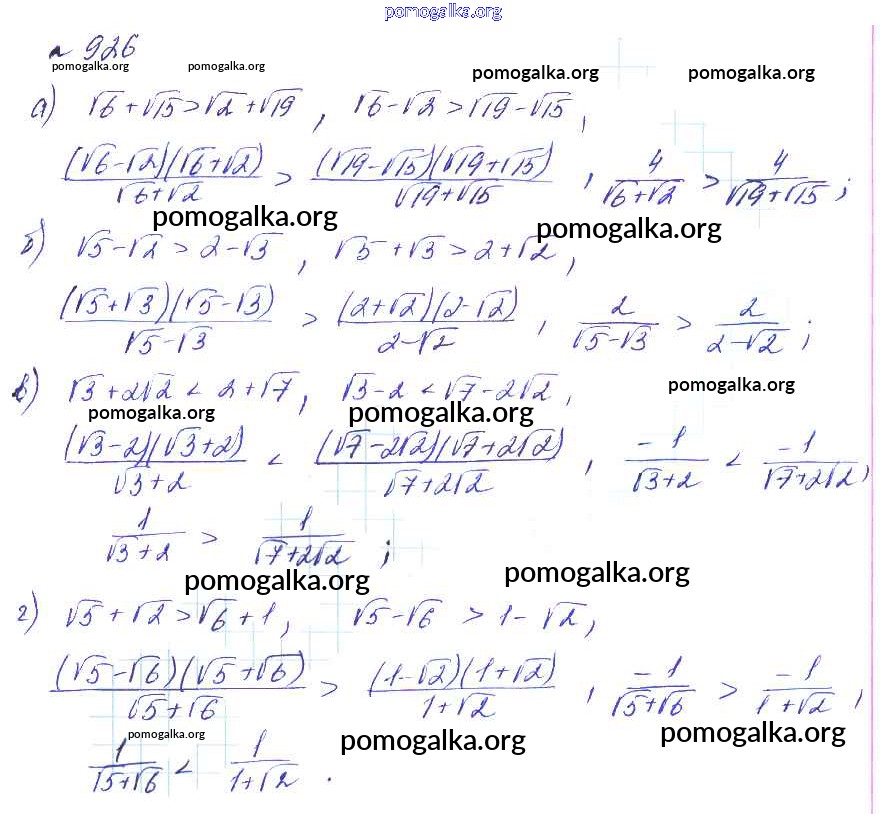 pomogalka.org
№ 926
pomogalka.org pomogalka.org pomogalka.org pomogalka.org
а) √6+√15>√2+√19, √6-√2>√19-√15,
(√6-√2)(√6+√2)/(√6+√2) > (√19-√15)(√19+√15)/(√19+√15), 4/(√6+√2) > 4/(√19+√15);
pomogalka.org pomogalka.org
б) √5-√2>2-√3, √5+√3>2+√2,
(√5+√3)(√5-√3)/(√5-√3) > (2+√2)(2-√2)/(2-√2), 2/(√5-√3) > 2/(2-√2);
в) √3+2√2<2+√7, √3-2<√7-2√2,
pomogalka.org pomogalka.org pomogalka.org
(√3-2)(√3+2)/(√3+2) < (√7-2√2)(√7+2√2)/(√7+2√2), -1/(√3+2) < -1/(√7+2√2),
1/(√3+2) > 1/(√7+2√2);
pomogalka.org pomogalka.org
г) √5+√2>√6+1, √5-√6>1-√2,
(√5-√6)(√5+√6)/(√5+√6) > (1-√2)(1+√2)/(1+√2), -1/(√5+√6) > -1/(1+√2),
pomogalka.org pomogalka.org pomogalka.org
1/(√5+√6) < 1/(1+√2).